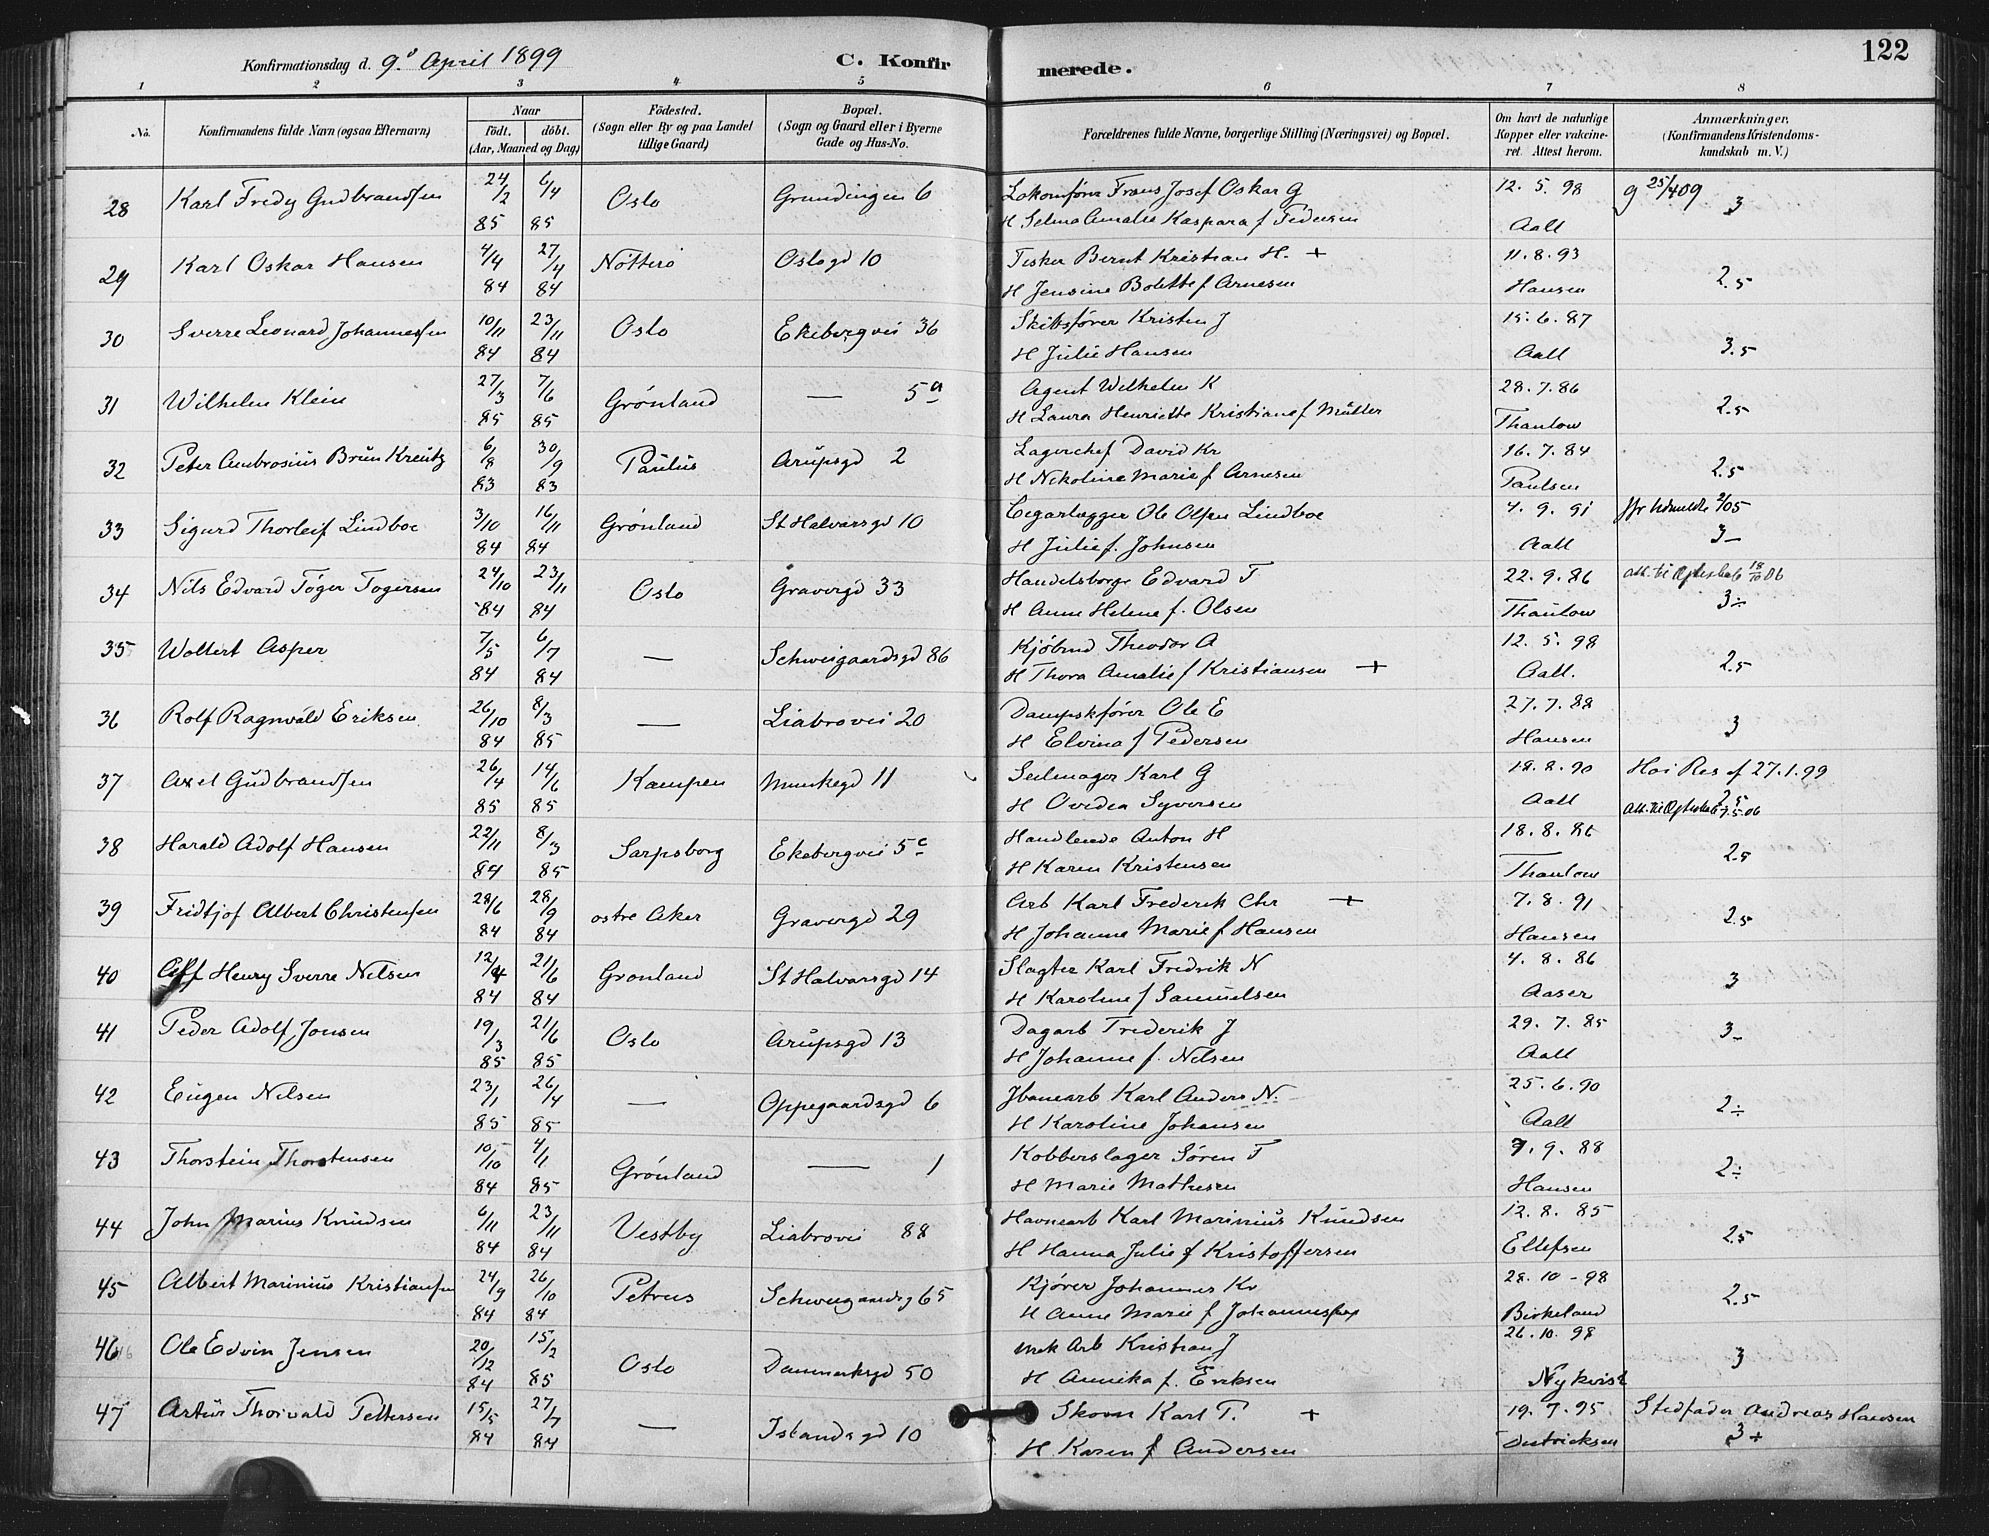 122
Konfirmationsdag d. 9d April 1899 C. Konfirmerede.
1 2 3 4 5 6 7 8
No. Konfirmandens fulde Navn (ogsaa Efternavn) Naar födt. döbt. (Aar, Maaned og Dag) Födested. (Sogn eller By og paa Landet tillige Gaard) Bopæl. (Sogn og Gaard eller i Byerne Gade og Hus-No. Forældrenes fulde Navne, borgerlige Stilling (Næringsvei) og Bopæl. Om havt de naturlige Kopper eller vakcineret. Attest herom. Anmærkninger. (Konfirmandens Kristendomskundskab m. V.)
28 Karl Fredy Gudbrandsen 24/2 85 6/4 85 Oslo Grundingen 6 Lokomfører Frans Josef Oskar G 12.5.98 g 25/409
H Selma Amalie Kaspara f Pedersen Aall 3
29 Karl Oskar Hansen 4/4 84 27/4 84 Nötterö Oslogd 10 Fisker Bernt Kristian H. + 11.8.93
H Jensine Bolette f Arnesen Hansen 2.5
30 Sverre Leonard Johannessen 10/11 84 23/11 84 Oslo Ekebergvei 36 Skibsfører Kristen J 15.6.87
H Julie Hansen Aall 3.5
31 Wilhelm Klein 27/3 85 7/6 85 Grönland — 5a Agent Wilhelm K 28.7.86
H Laura Henriette Kristiane f Müller Thaulow 2.5
32 Peter Ambrosius Brun Kreutz 6/8 83 30/9 83 Paulus Arupsgd 2 Lagerchef David Kr 16.7.84
H Nikoline Marie f Arnesen Paulsen 2.5
33 Sigurd Thorleif Lindboe 3/10 84 16/11 84 Grönland St Halvarsgd 10 Cigarlægger Ole Olsen Lindboe 4.9.91
H Julie f. Johnsen Aall 3-
34 Nils Edvard Töger Togersen 24/10 84 23/11 84 Oslo Gravergd 33 Handelsborge Edvard T 22.9.86 Att. til Ægteskab 18/10 06
H Anne Helene f. Olsen Thaulow 3÷
35 Woltert Asper 7/5 84 6/7 84 — Schweigaardsgd 86 Kjöbmd Theodor A 12.5.98
H Thora Amalie f Kristiansen + Aall. 2.5
36 Rolf Ragnvald Eriksen 26/10 84 8/3 85 — Liabrovei 20 Dampskfører Ole E 27.7.88
H Elvina f Pedersen Hansen 3
37 Axel Gudbrandsen 26/4 85 14/6 85 Kampen Munkegd 11 Seilmager Karl G 18.8.90 Hoi Res af 27.1.99
H Ovidia Syversen Aall 2.5 Att. til Ægteskab 7.5.06
38 Harald Adolf Hansen 22/11 84 8/3 85 Sarpsborg Ekebergvei 5c Handlende Anton H 18.8.86
H Karen Kristensen Thaulow 2.5
39 Fridtjof Albert Christensen 28/6 84 28/9 84 ostre Aker Gravergd 29 Arb Karl Frederik Chr + 7.8.91
H Johanne Marie f Hansen Hansen 2.5
40 Henry Sverre Nilsen 12/4 84 21/6 84 Gronland St Halvarsgd 14 Slagter Karl Fredrik N 4.8.86
H Karoline f Samuelsen Aaser 3
41 Peder Adolf Jonsen 19/3 85 21/6 85 Oslo Arupsgd 13 Dagarb Frederik J 29.7.85
H Johanne f. Nilsen Aall 3-
42 Eugen Nilsen 23/1 85 26/4 85 — Oppegaardsgd 6 Jbanearb Karl Anders N. 25.6.90
H Karoline Johansen Aall 2÷
43 Thorstein Thorstensen 10/10 84 4/1 85 Grönland — 1 Kobberslager Sören T 7.9.88
H Marie Mathisen Hansen 2÷
44 John Marius Knudsen 6/11 84 23/11 84 Vestby Liabrovei 88 Havnearb Karl Marinius Knudsen 12.8.85
H Hanna Julie f Kristoffersen Ellefsen 2.5
45 Albert Marinius Kristiansen 24/9 84 26/10 84 Petrus Schweigaardsg 65 Kjører Johannes Kr 28.10-98
H Anne Marie f Johannesen Birkeland 2.5
46 Ole Edvin Jensen 20/12 84 15/2 85 Oslo Danmarksgd 50 mek Arb Kristian J 26.10.98
H Annika f. Eriksen Nykvist 3
47 Artur Thorvald Pettersen 15/5 84 27/7 84 — Islandsgd 10 Skom Karl P. + 19.7.95 Stedfader Andreas Hansen
H Karen f Andersen Diedricksen 3+